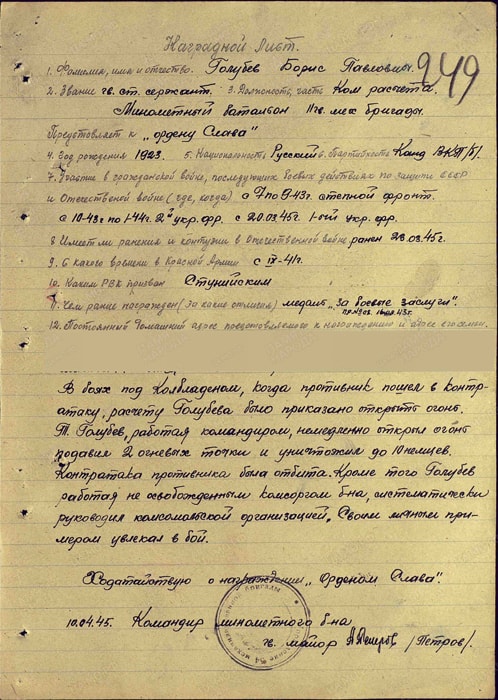 Наградной лист.
249
1. Фамилия, имя и отчество. Голубев Борис Павлович.
2. Звание гв. ст. сержант. 3. Должность, часть Ком расчета.
Минометный батальон 11 гв. мех бригады.
Представляется к „ордену Слава“
4. Год рождения 1923. 5. Национальность Русский 6. Партийность Канд ВКП/б/.
7. Участие в гражданской войне, последующих боевых действиях по защите СССР
и Отечественой войне (где, когда) с 7 по 9-43г. степной фронт.
с 10-43г по 1-44г. 2й укр. фр. с 20.03.45г. 1-ый укр. фр.
8. Имеет ли ранения и контузии в Отечественой войне ранен 23.03.45г.
9. С какого времени в Красной Армии с IX-41г.
10. Каким РВК призван Ступийским
11. Чем ранее награжден (за какие отличия) медаль „За боевые заслуги“.
12. Постоянный домашний адрес представляемого к награждению и адрес его семьи.
В боях под Колбладеном, когда противник пошел в контр-
атаку, расчету Голубева было приказано открыть огонь.
Т. Голубев, работая командиром, немедленно открыл огонь
подавил 2 огневых точки и уничтожил до 10 немцев.
Контратака противника была отбита. Кроме того Голубев
работая не освобожденным комсоргом б-на, систематически
руководил комсомольской организацией. Своим личным при-
мером увлекал в бой.
Ходатайствую о награждении „Орденом Слава“.
10.04.45. Командир минометного б-на
гв. майор /Петров/